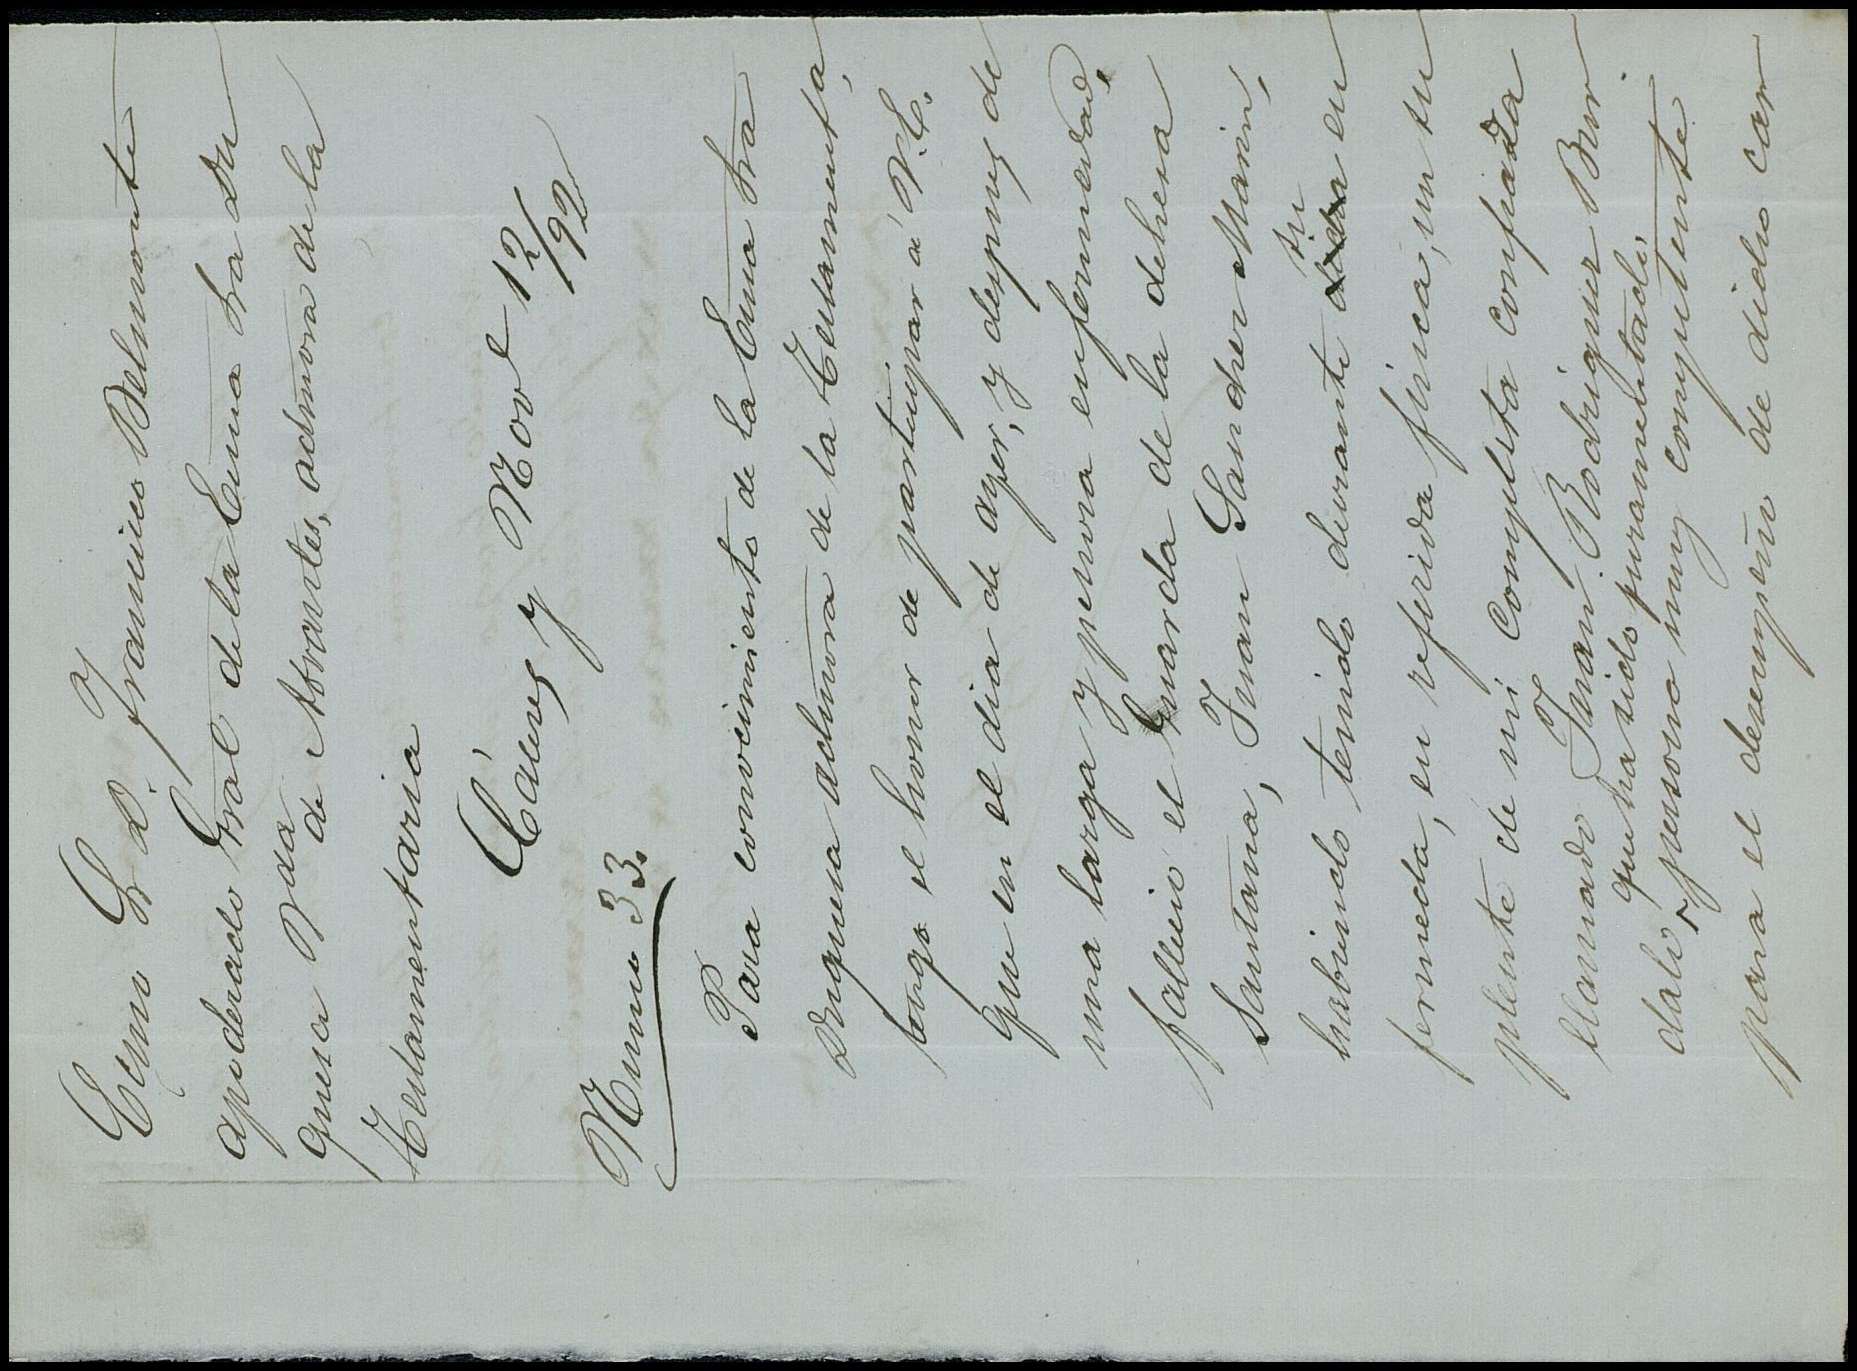 Exmo Sr D. Francisco Belmonte
apoderado Gral de la Exma Sra Du
quesa Vda de Abrantes, admora de la
Testamentaria
Cáceres y Nove 12/92
Numo 33.
Para conocimiento de la Exma Sra
Duquesa admora de la Testamenta,
tengo el honor de participar á V.E.
que en el dia de ayer, y despues de
una larga y penosa enfermedad,
fallecio el Guarda de la dehesa
Santana, Juan Sanchez Marin,
habiendo tenido durante dicha su en
fermeda, en referida finca, un su
plente de mi completa confianza
llamado Juan Rodriguez Bur
dalo, que ha sido juramentado
y persona muy competente
para el desempeño de dicho car